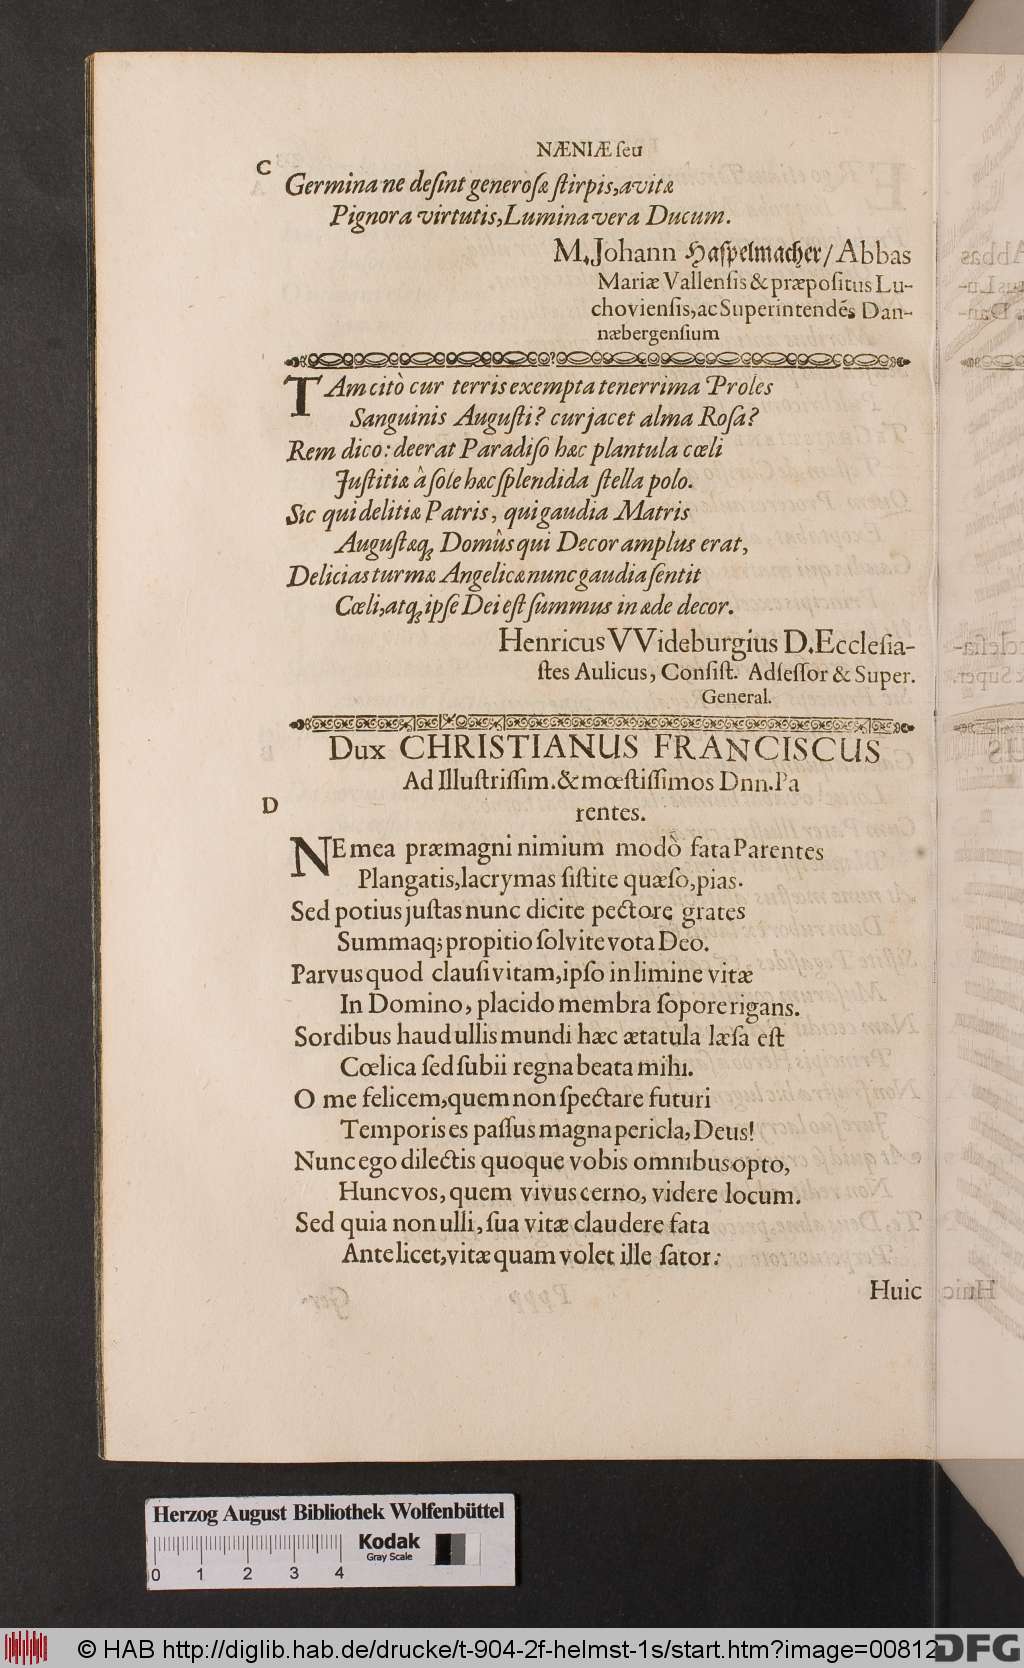 NÆNIÆ ſeu
C
Germina ne deſint generoſæ ſtirpis, avitæ
Pignora virtutis, Lumina vera Ducum.
M. Johann Haſpelmacher/ Abbas
Mariæ Vallenſis & præpoſitus Lu-
chovienſis, ac Superintendēs Dan-
næbergenſium
TAm citò cur terris exempta tenerrima Proles
Sanguinis Auguſti? cur jacet alma Roſa?
Rem dico: deerat Paradiſo hæc plantula cœli
Juſtitiæ â ſole hæc ſplendida ſtella polo.
Sic qui delitiæ Patris, qui gaudia Matris
Auguſtæq; Domûs qui Decor amplus erat,
Delicias turmæ Angelicæ nunc gaudia ſentit
Cœli, atq; ipſe Dei eſt ſummus in æde decor.
Henricus VVideburgius D. Eccleſia-
ſtes Aulicus, Conſiſt. Adſeſſor & Super.
General.
Dux CHRISTIANUS FRANCISCUS
Ad Illuſtriſſim. & mœſtiſſimos Dnn. Pa
rentes.
D
NE mea præmagni nimium modò fata Parentes
Plangatis, lacrymas ſiſtite quæſo, pias.
Sed potius juſtas nunc dicite pectore grates
Summaq; propitio ſolvite vota Deo.
Parvus quod clauſi vitam, ipſo in limine vitæ
In Domino, placido membra ſopore rigans.
Sordibus haud ullis mundi hæc ætatula læſa eſt
Cœlica ſed ſubii regna beata mihi.
O me felicem, quem non ſpectare futuri
Temporis es paſſus magna pericla, Deus!
Nunc ego dilectis quoque vobis omnibus opto,
Hunc vos, quem vivus cerno, videre locum.
Sed quia non ulli, ſua vitæ claudere fata
Ante licet, vitæ quam volet ille ſator:
Huic
Herzog August Bibliothek Wolfenbüttel
Kodak
Gray Scale
0 1 2 3 4
© HAB http://diglib.hab.de/drucke/t-904-2f-helmst-1s/start.htm?image=00812
DFG